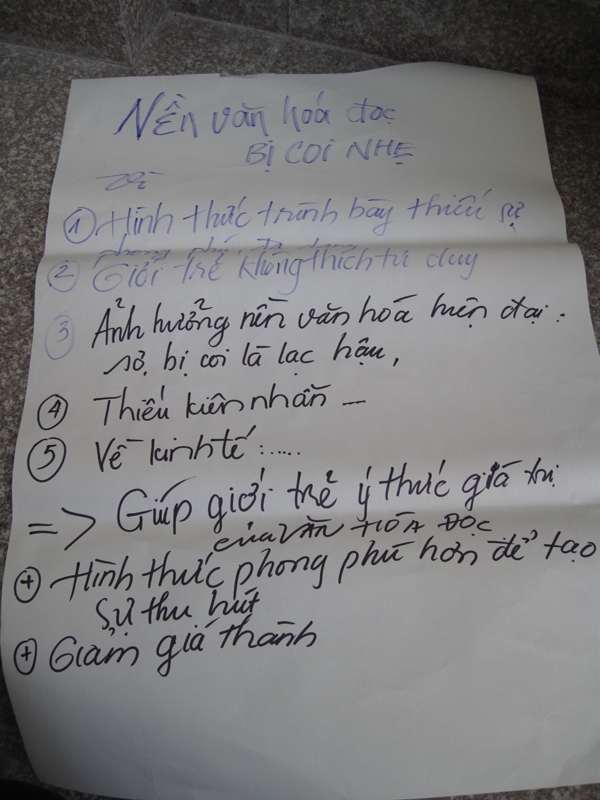 Nền văn hóa đọc
BỊ COI NHẸ
Vì
① Hình thức trình bày thiếu sự
phong phú, đa
② Giới trẻ không thích tư duy
③ Ảnh hưởng nền văn hoá hiện đại :
sợ bị coi là lạc hậu,
④ Thiếu kiên nhẫn ...
⑤ Về kinh tế :.....
=> Giúp giới trẻ ý thức giá trị
của VĂN HÓA ĐỌC
+ Hình thức phong phú hơn để tạo
sự thu hút
+ Giảm giá thành